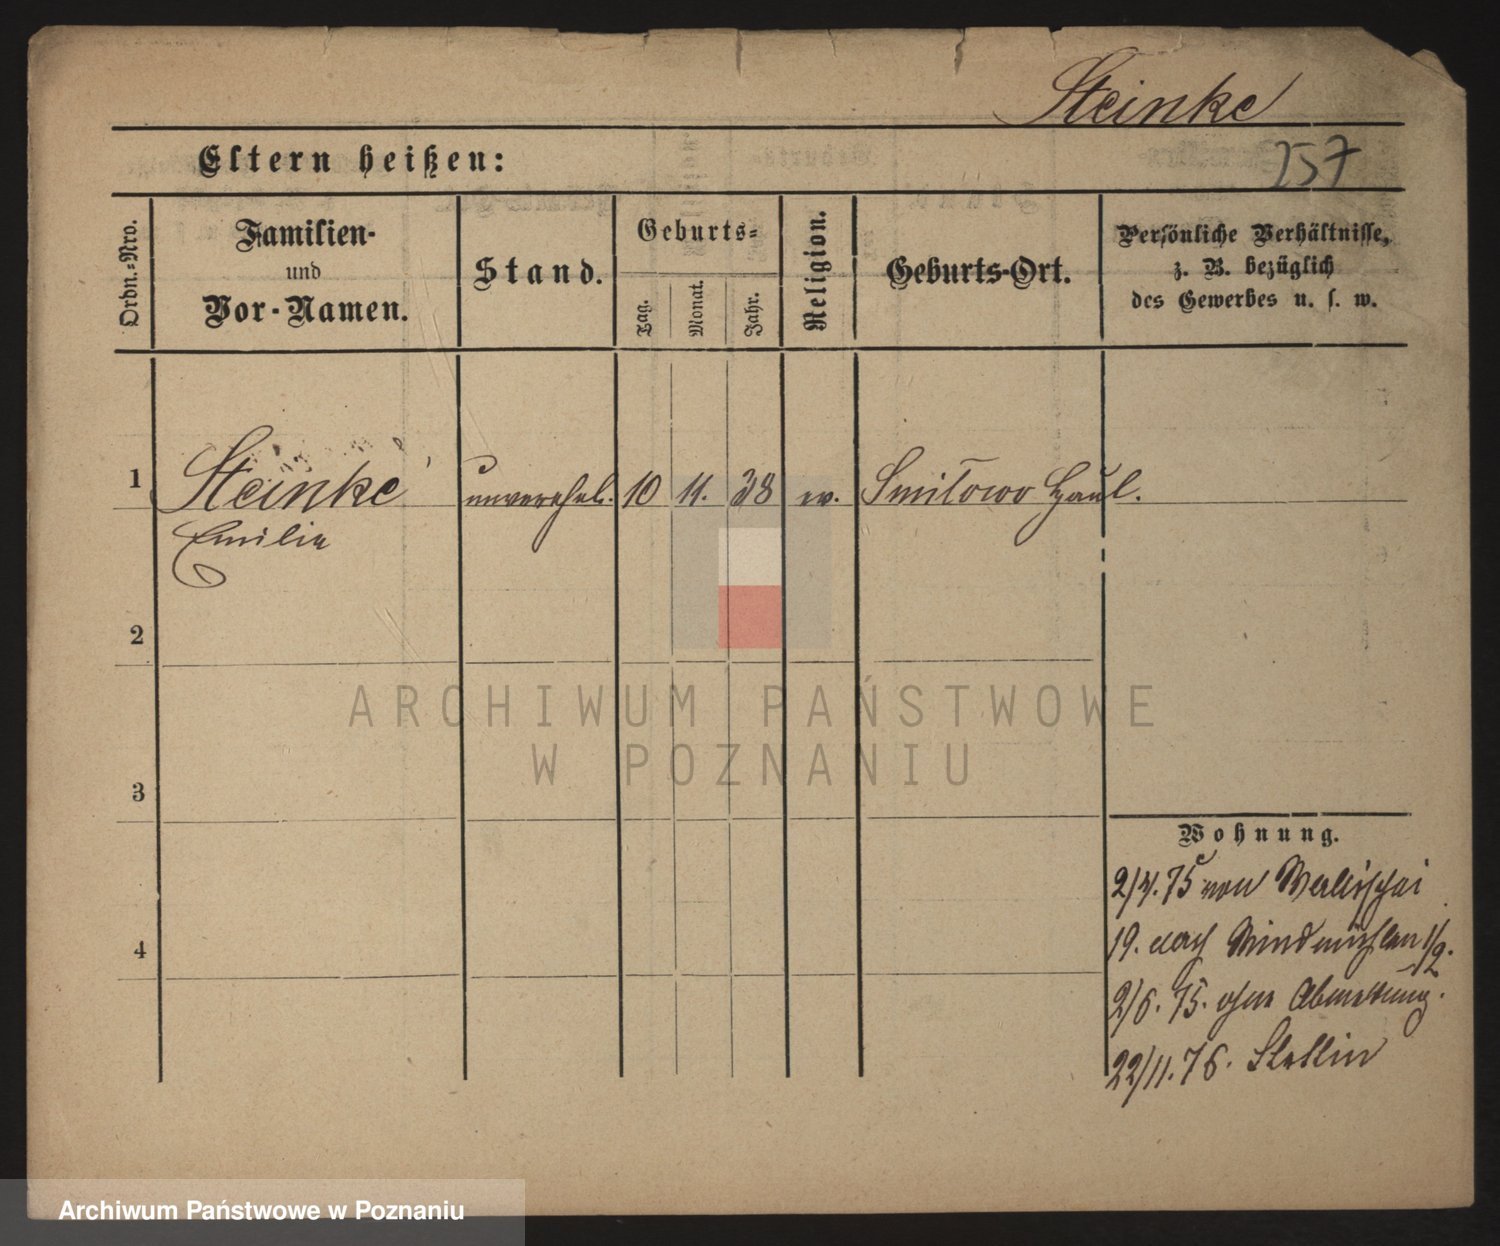 Steinke
257
Eltern heißen:
Ordn.-Nro.
Familien-
und
Vor-Namen.
Stand.
Geburts-
Tag.
Monat.
Jahr.
Religion.
Geburts-Ort.
Persönliche Verhältnisse,
z. B. bezüglich
des Gewerbes u. s. w.
1 Steinke unverehel. 10 11. 38 ev. Smilowo Haul.
Emilie
2
3
Wohnung.
2/4. 75 von Wallischei
19. nach Windmühlen 1/2.
4
2/6. 75. ohne Abmeldung.
22/11. 76. Stettin
ARCHIWUM PAŃSTWOWE
W POZNANIU
Archiwum Państwowe w Poznaniu